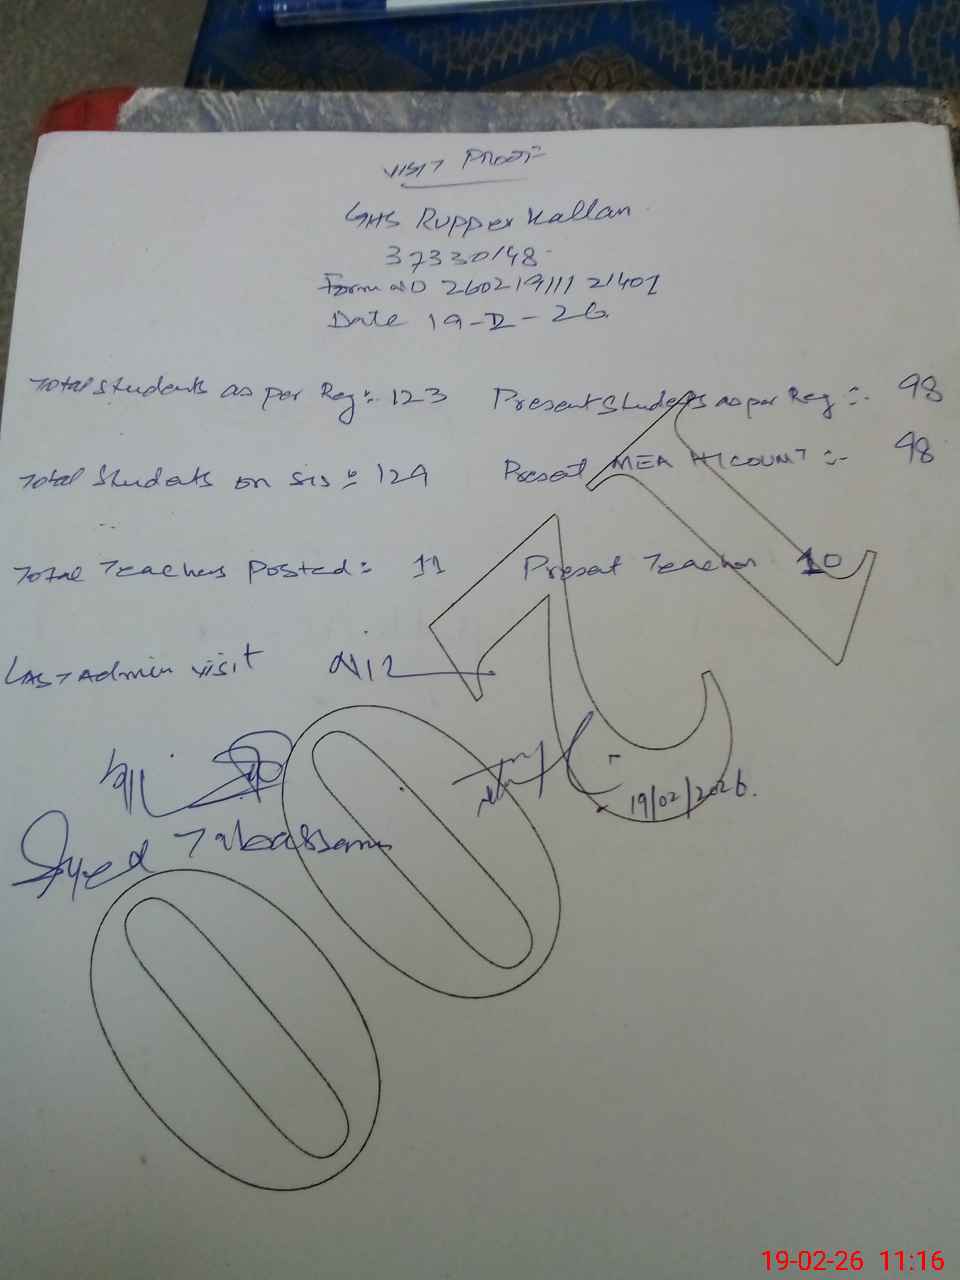 Visit Proof
GHS Rupper Kallan
37330148
Form NO 26021911121401
Date 19-II-26
Total students as per Reg:- 123 Present Students as per Reg :- 98
Total Students on SIS :- 129 Present MEA H/COUNT :- 98
Total Teachers Posted:- 11 Present Teacher 10
Last Admin visit Nil
19/02/2026.
Syed Tabassam
0021
19-02-26 11:16